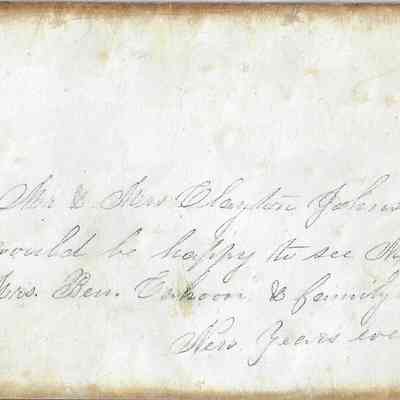 Mr & Mrs Clayton Johns
would be happy to see M
Mrs. Ben. Cahoon & family
New Years eve